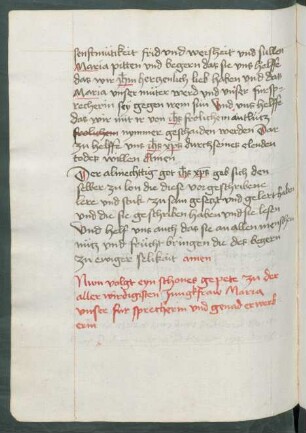 senftmütikeit frid vnd weisheit vnd sullen
Maria pitten vnd begern das sie vns helffe
das wir ihm hertzenlich lieb haben vnd das
Maria vnser müter werd vnd vnser fürsp
recherin sey gegen irem sun Vnd vns helffe
das wir nit von ihs frolichem antlütz
frolichem nymmer gescheiden werden Dar
zu helff vns ihs xps durch seines elenden
todes willen Amen
Der almechtig got ihs xps geb sich den
selber zu lon die diese vorgeschribene
lere vnd stuck zu sam geseczt vnd gelert haben
vnd die sie geschriben haben vnd sie lesen
Vnd helf vns auch das sie an allen menschen
nütz vnd frücht bringen die des begern
zu ewiger selikait amen
Nun volgt eyn schönes gepete zu der
aller wirdigisten Jungkfraw Maria
vnser fürsprecherin vnd genad erwerb
erin